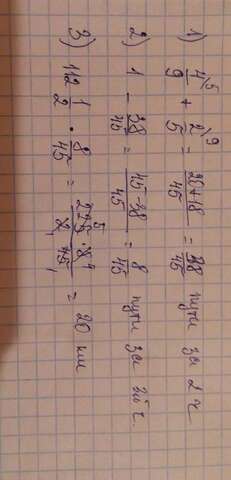 1) 4/9 \5 + 2/5 \9 = (20+18)/45 = 38/45 пути за 2 ч
2) 1 - 38/45 = (45-38)/45 = 8/45 пути за 3й ч.
3) 112 1/2 · 8/45 = (225 5 · 8 4)/(2 1 · 45 1) = 20 км